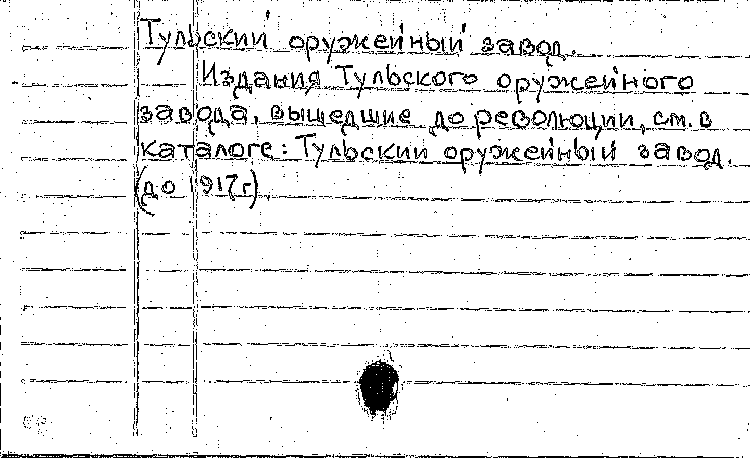 Тульский оружейный завод.
Издания Тульского оружейного
завода, вышедшие до революции, см. в
каталоге: Тульский оружейный завод.
(до 1917г)